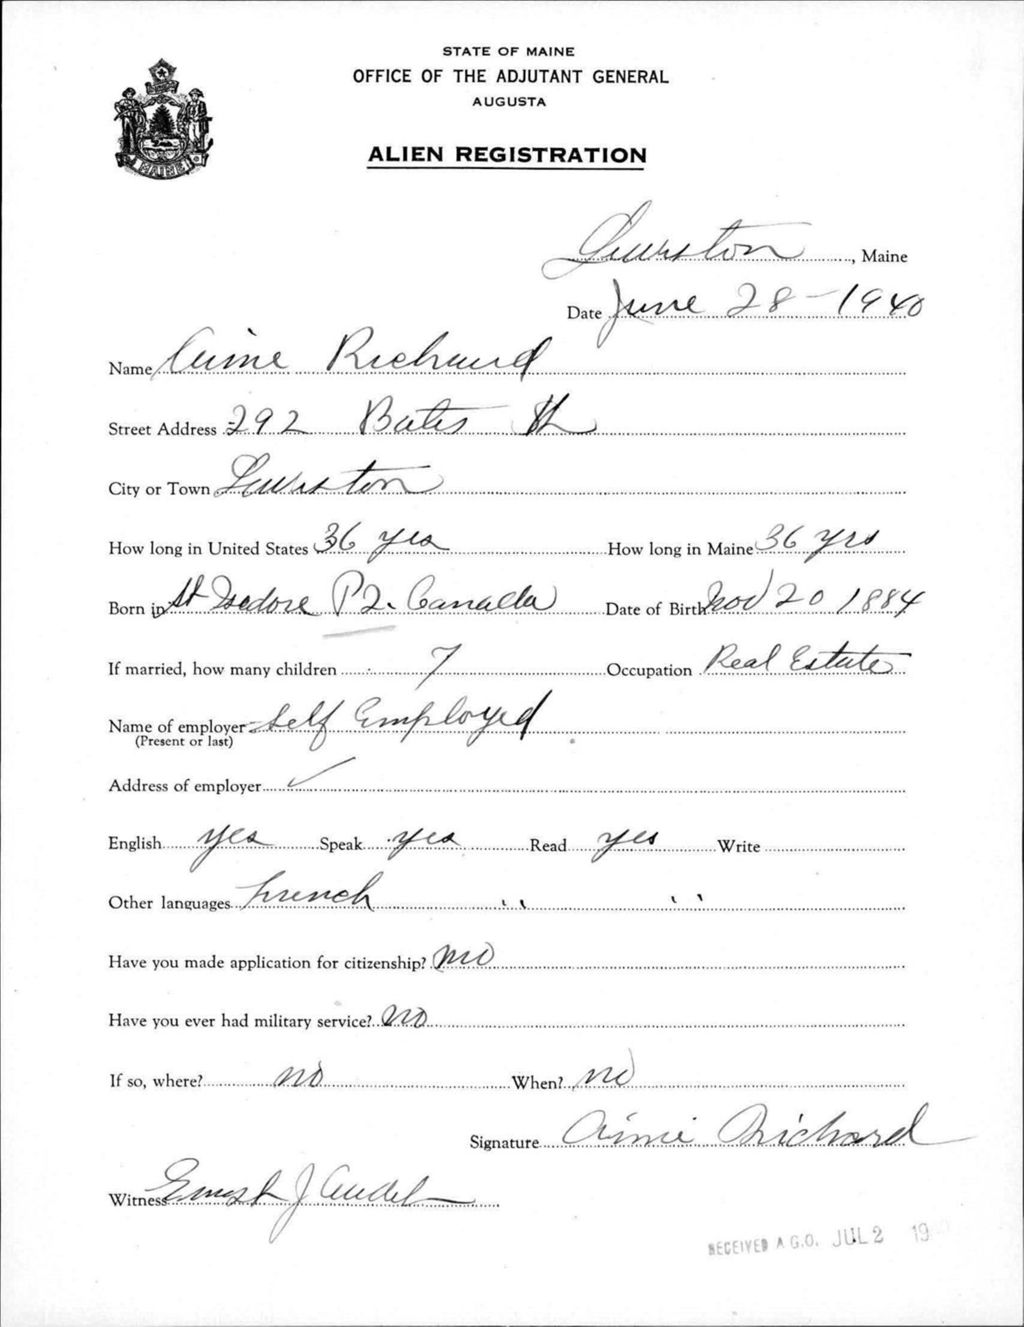 STATE OF MAINE
OFFICE OF THE ADJUTANT GENERAL
AUGUSTA
ALIEN REGISTRATION
MAINE
Lewiston, Maine
Date June 28-1940
Name Aime Richard
Street Address 292 Bates St
City or Town Lewiston
How long in United States 36 yrs How long in Maine 36 yrs
Born in St Isedore P2. Canada Date of Birth Nov 20 1884
If married, how many children 7 Occupation Real Estate
Name of employer Self Employed
(Present or last)
Address of employer ✓
English yes Speak yes Read yes Write
Other languages french " "
Have you made application for citizenship? no
Have you ever had military service? no
If so, where? no When? no
Signature Aimé Richard
Witness Ernest J
RECEIVED A.G.O. JUL 2 19